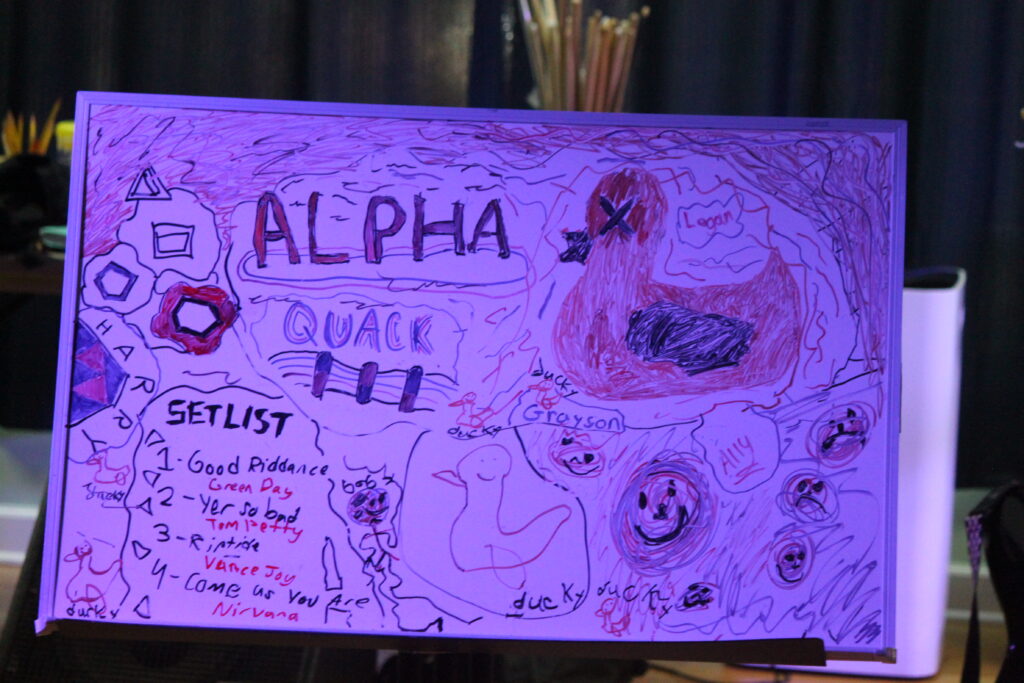 ALPHA
QUACK
Logan
HARRY
ducky
Grayson
ducky
Ally
SETLIST
1-Good Riddance
Green Day
2-Yer so bad
Tom Petty
3-Riptide
Vance Joy
4-Come us You Are
Nirvana
ducky
ducky
ducky